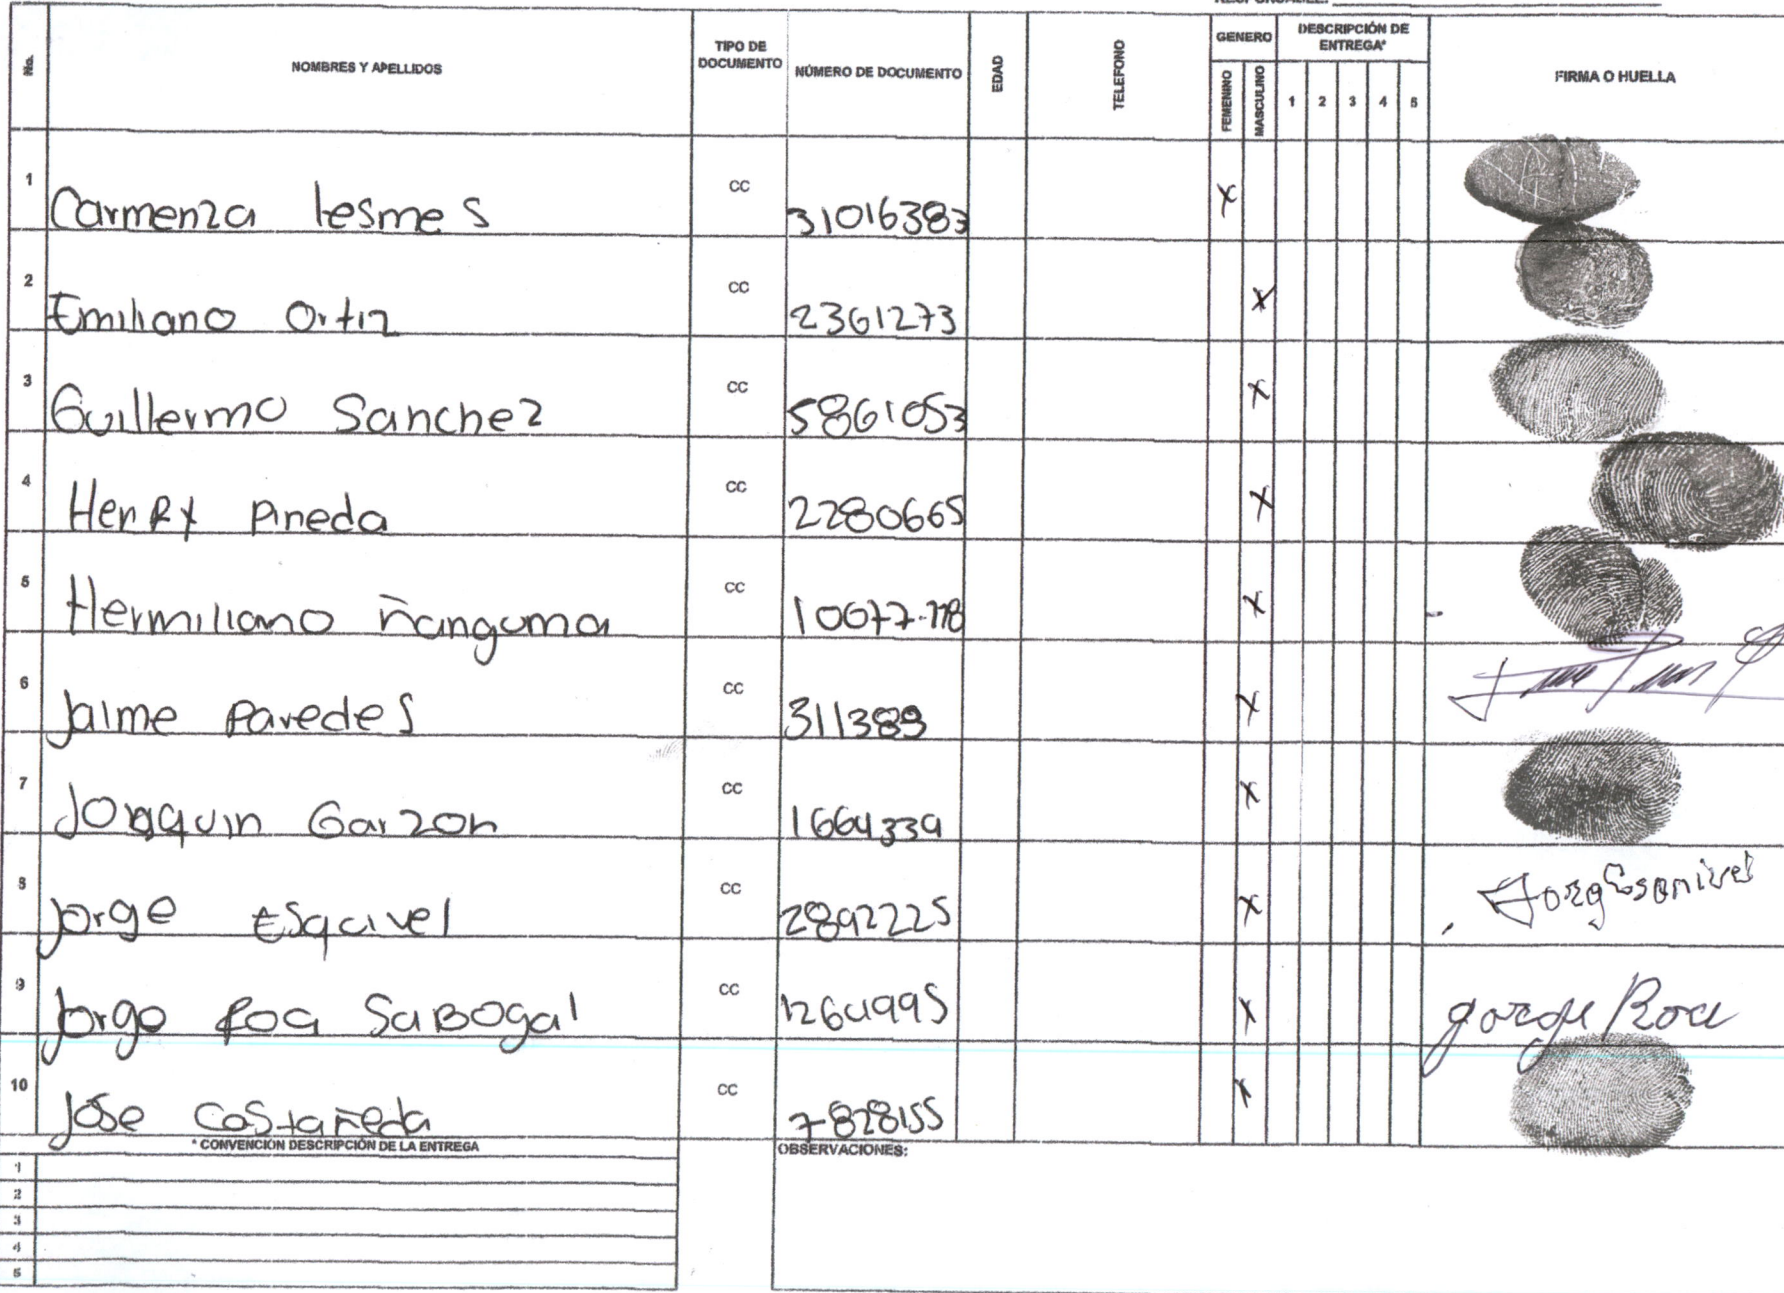 RESPONSABLE:
No. NOMBRES Y APELLIDOS TIPO DE DOCUMENTO NÚMERO DE DOCUMENTO EDAD TELEFONO GENERO FEMENINO MASCULINO DESCRIPCIÓN DE ENTREGA* 1 2 3 4 5 FIRMA O HUELLA
1 Carmenza lesmes CC 31016383 X
2 Emiliano Ortiz CC 2361273 X
3 Guillermo Sanchez CC 5861053 X
4 HenRy Pineda CC 2280665 X
5 Hermiliano ñanguma CC X
6 Jaime Paredes CC 311389 X
7 Joaquin Garzon CC 1664339 X
8 Jorge Esquivel CC 2892225 X
9 Jorge Roa SaBOgal CC 1264995 X gorge Roa
10 Jose Castañeda CC 7828155 X
* CONVENCIÓN DESCRIPCIÓN DE LA ENTREGA
OBSERVACIONES:
1
2
3
4
5